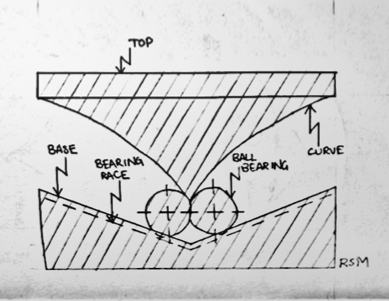 TOP
BASE
BEARING
RACE
BALL
BEARING
CURVE
RSM